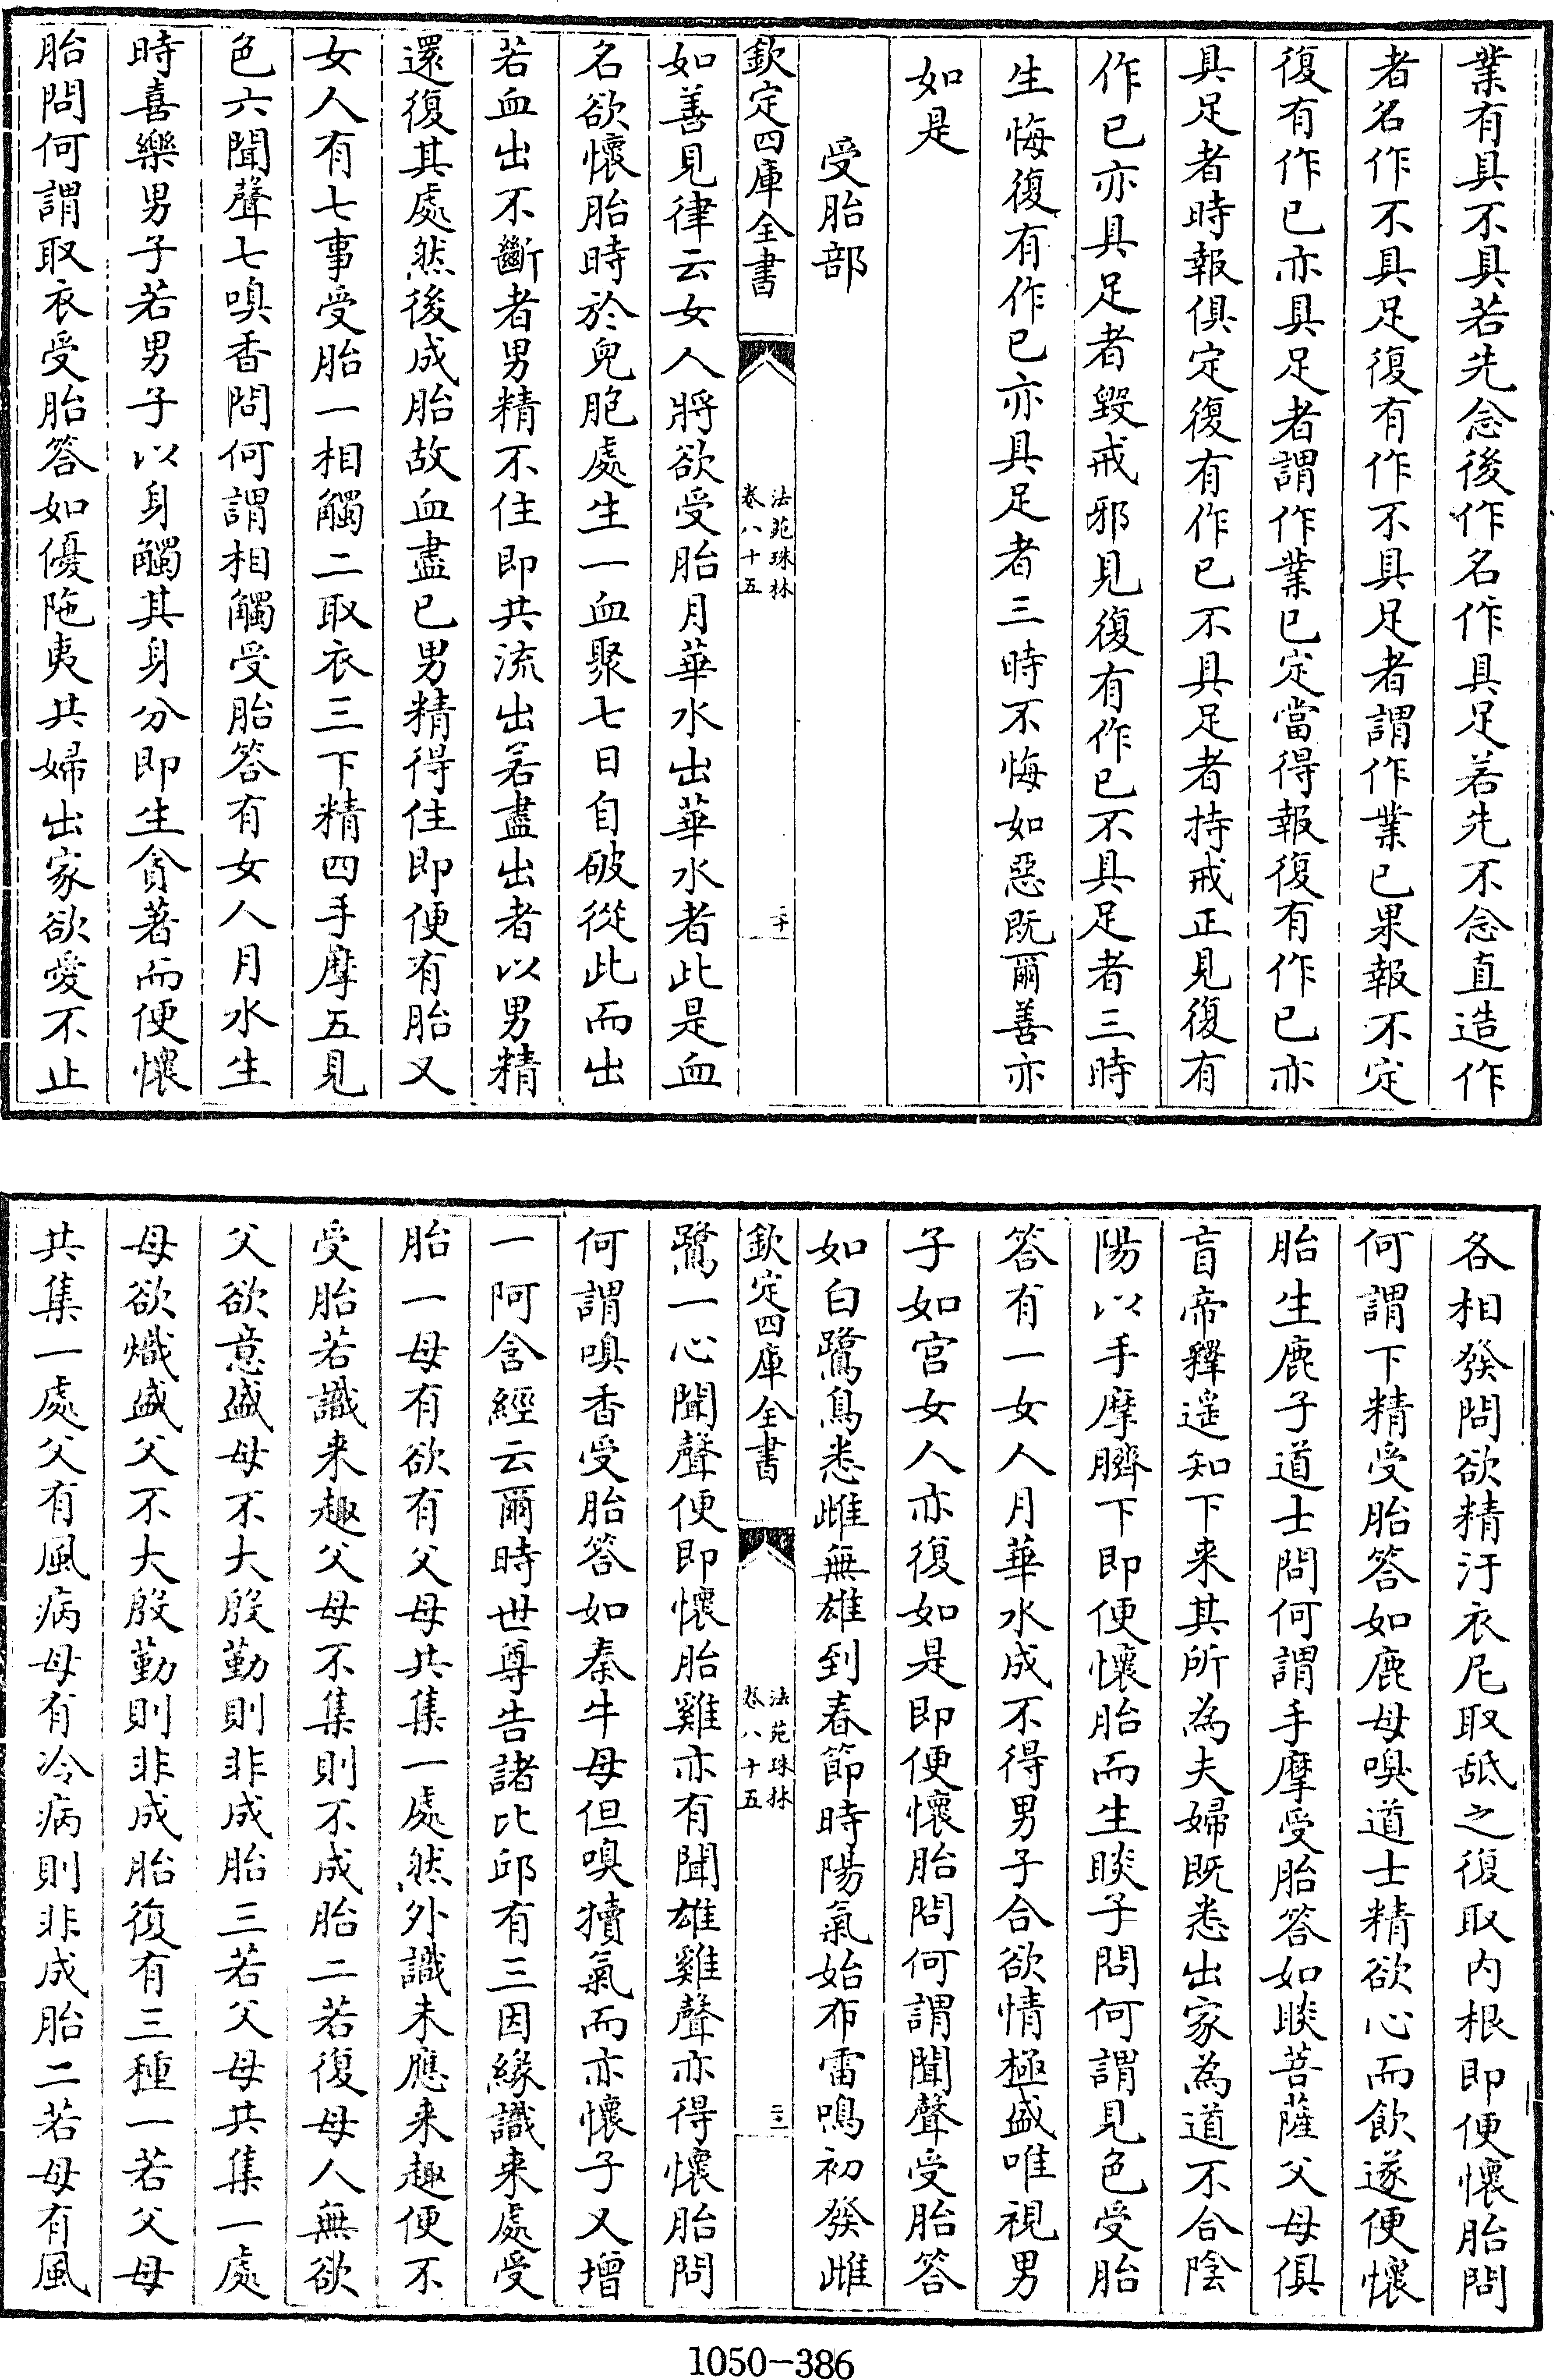 業有具不具若先念後作名作具足若先不念直造作
者名作不具足復有作不具足者謂作業已果報不定
復有作已亦具足者謂作業已定當得報復有作已亦
具足者時報俱定復有作已不具足者持戒正見復有
作已亦具足者毀戒邪見復有作已不具足者三時
生悔復有作已亦具足者三時不悔如惡既爾善亦
如是
受胎部
欽定四庫全書
法苑珠林
卷八十五
二十
如善見律云女人將欲受胎月華水出華水者此是血
名欲懷胎時於兒胞處生一血聚七日自破從此而出
若血出不斷者男精不住即共流出若盡出者以男精
還復其處然後成胎故血盡已男精得住即便有胎又
女人有七事受胎一相觸二取衣三下精四手摩五見
色六聞聲七嗅香問何謂相觸受胎答有女人月水生
時喜樂男子若男子以身觸其身分即生貪著而便懷
胎問何謂取衣受胎答如優陁夷共婦出家欲愛不止
各相發問欲精汙衣尼取舐之復取内根即便懷胎問
何謂下精受胎答如鹿母嗅道士精欲心而飲遂便懷
胎生鹿子道士問何謂手摩受胎答如睒菩薩父母俱
盲帝釋遥知下来其所為夫婦既悉出家為道不合陰
陽以手摩臍下即便懷胎而生睒子問何謂見色受胎
答有一女人月華水成不得男子合欲情極盛唯視男
子如宫女人亦復如是即便懷胎問何謂聞聲受胎答
如白鷺鳥悉雌無雄到春節時陽氣始布雷鳴初發雌
欽定四庫全書
法苑珠林
卷八十五
二十一
鷺一心聞聲便即懷胎雞亦有聞雄雞聲亦得懷胎問
何謂嗅香受胎答如秦牛母但嗅犢氣而亦懷子又增
一阿含經云爾時世尊告諸比邱有三因緣識来處受
胎一母有欲有父母共集一處然外識未應来趣便不
受胎若識来趣父母不集則不成胎二若復母人無欲
父欲意盛母不大殷勤則非成胎三若父母共集一處
母欲熾盛父不大殷勤則非成胎復有三種一若父母
共集一處父有風病母有冷病則非成胎二若母有風
1050-386